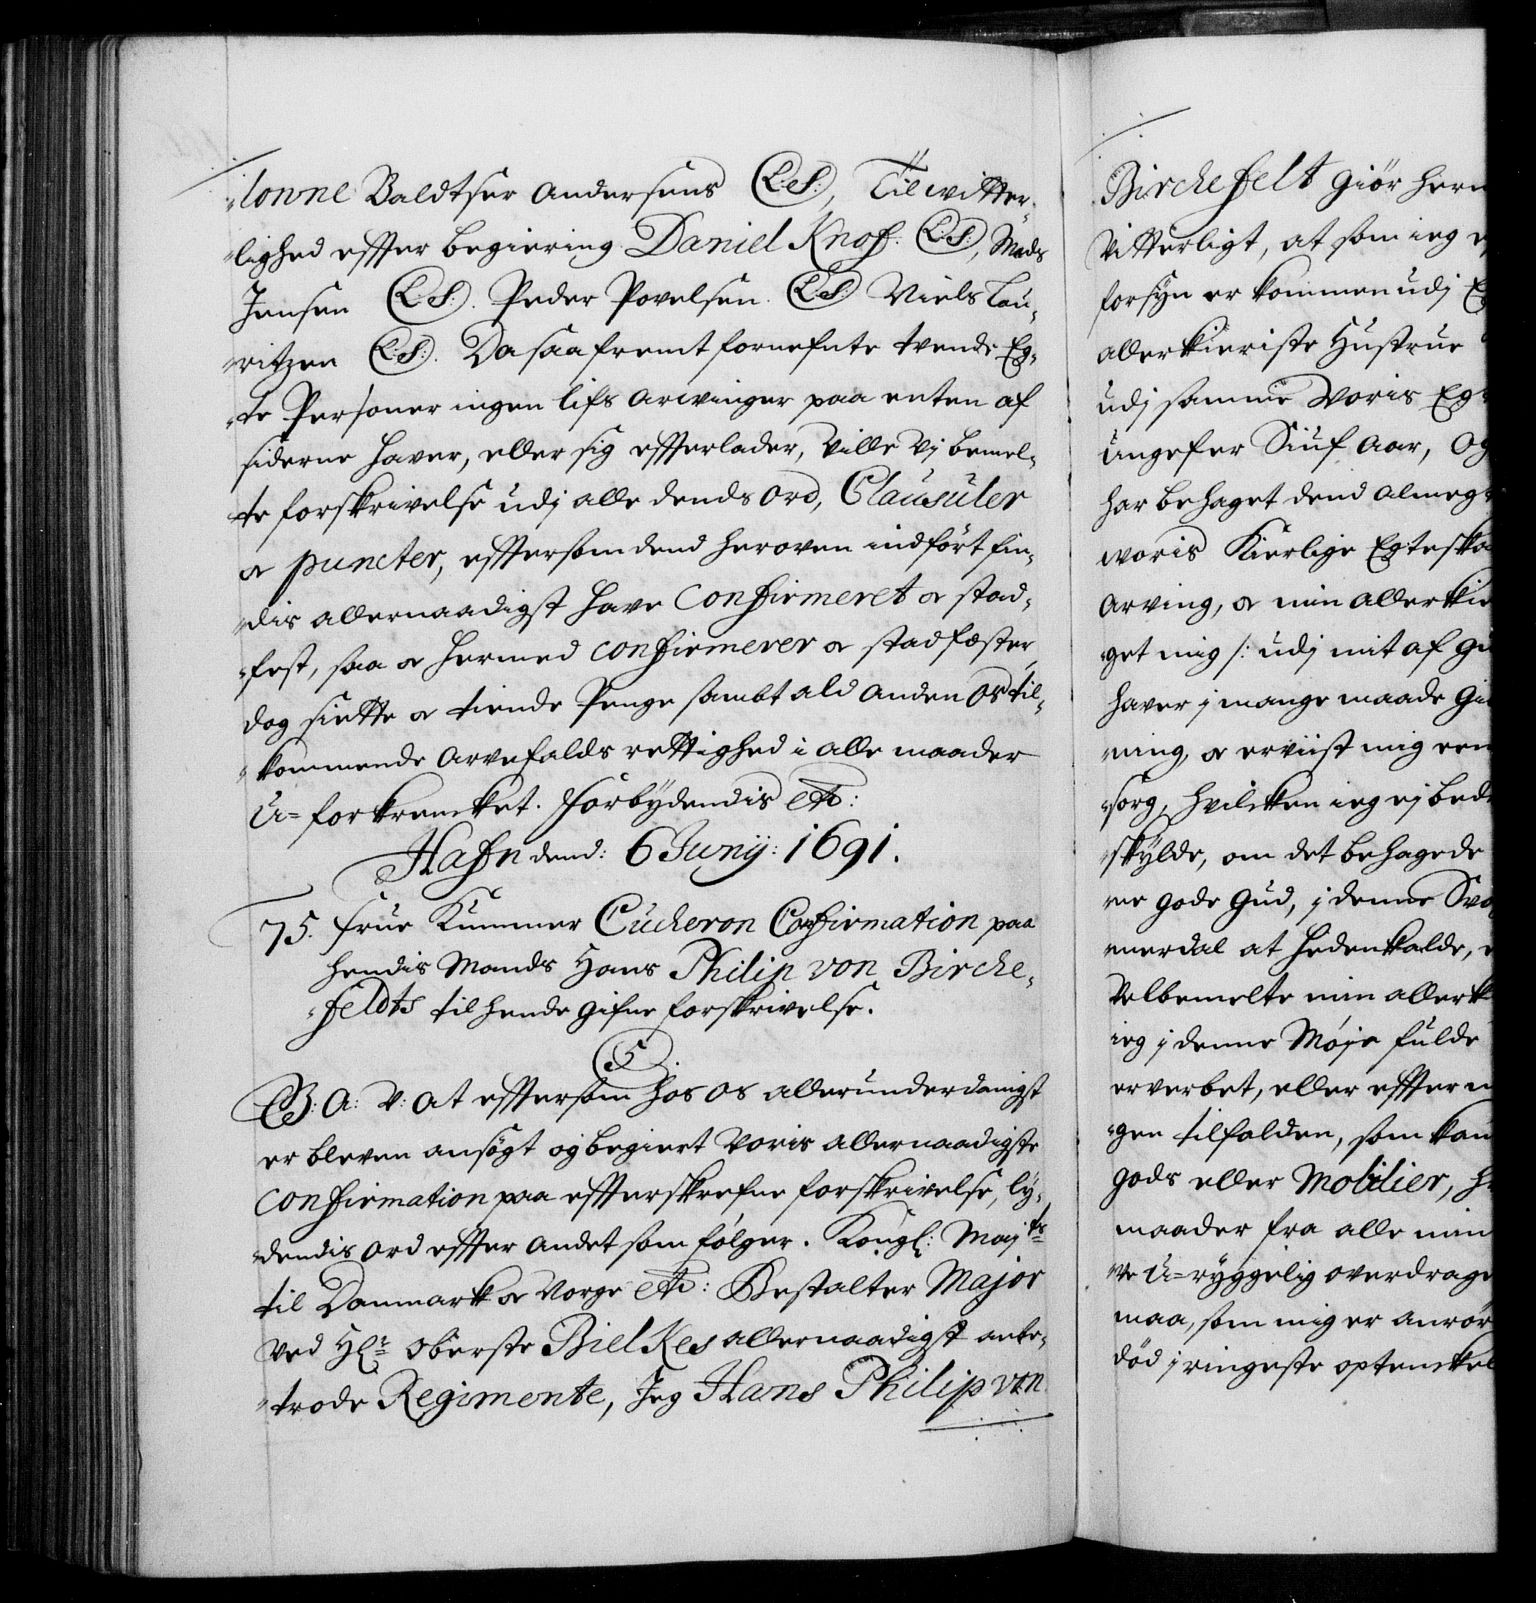 lonne Baldtser Andersens (L:S:), Til witter-
lighed effter begiering Daniel Knof. (L:S:), Mads
Jensen (L:S:). Peder Povelsen. (L:S:) Niels Lau-
ritzen (L:S:). Da saafremt fornefnte tvende Eg-
te Personer ingen lifs arwinger paa enten af
siderne haver, eller sig effterlader, ville vj bemel-
te forskrivelse udj alle dends ord, Clausuler
oc puncter, efftersom dend heroven indført fin-
dis allernaadigst have Confirmeret oc stad-
fest, saa oc hermed confirmerer oc stadfæster,
dog siette oc tiende Penge sambt ald anden Os til-
kommende arvefalds rettighed i alle maader
U-forkrencket. Forbydendis etc:
Hafn dend: 6 Junij: 1691.
75. Frue Kummer Cucheron Confirmation paa
hendis Mands Hans Philip von Birche-
feldts til hende gifne forskrivelse.
C5.
G: A: V: at efftersom hos os allerunderdanigst
er bleven ansøgt og begiert voris allernaadigste
confirmation paa effterskrefne forskrivelse, ly-
dendis ord effter andet som følger. Kongl: Maj:ts
til Danmark oc Norge etc: Bestalter Major
ved Hr: Oberste Bielkes allernaadigst anbe-
trode Regimente, Jeg Hans Philip von
Birchefelt giør her
vitterligt, at som ieg
forsyn er kommen udj
allerkieriste Hustrue
udj samme voris Eg-
ungefer Siuf aar, og
har behaget dend almeg-
woris kierlige Egteska
arving, oc min allerkie
get mig /: udj mit af
haver j mange maade
ning, oc erviist mig een
sorg, hvilcken ieg ej
skylde, om det behagede
ne gode Gud, j denne
merdal at hedenkalde,
velbemelte min allerk
ieg j denne Møje fulde
erverbet, eller effter
gen tilfalden, som kan
gods eller Mobilier,
maader fra alle min
ve U-ryggelig overdrage
maa, som mig er anrør
død j ringeste optenckel